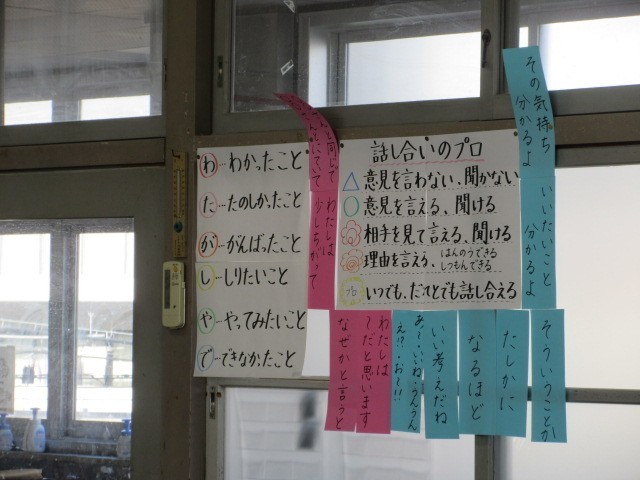 わ…わかったこと
た…たのしかったこと
が…がんばったこと
し…しりたいこと
や…やってみたいこと
で…できなかったこと
と同じで
にていて
わたしは
少しちがって
話し合いのプロ
意見を言わない、聞かない
意見を言える、聞ける
相手を見て言える、聞ける
理由を言える、はんのうできる
しつもんできる
プロ
いつでも、だれとでも話し合える
その気持ち
分かるよ
いいたいこと
分かるよ
そういうことか
たしかに
なるほど
いい考えだね
あ〜・いいね・うんうん
え!?・お〜!!
わたしは
〜だと思います
なぜかと言うと